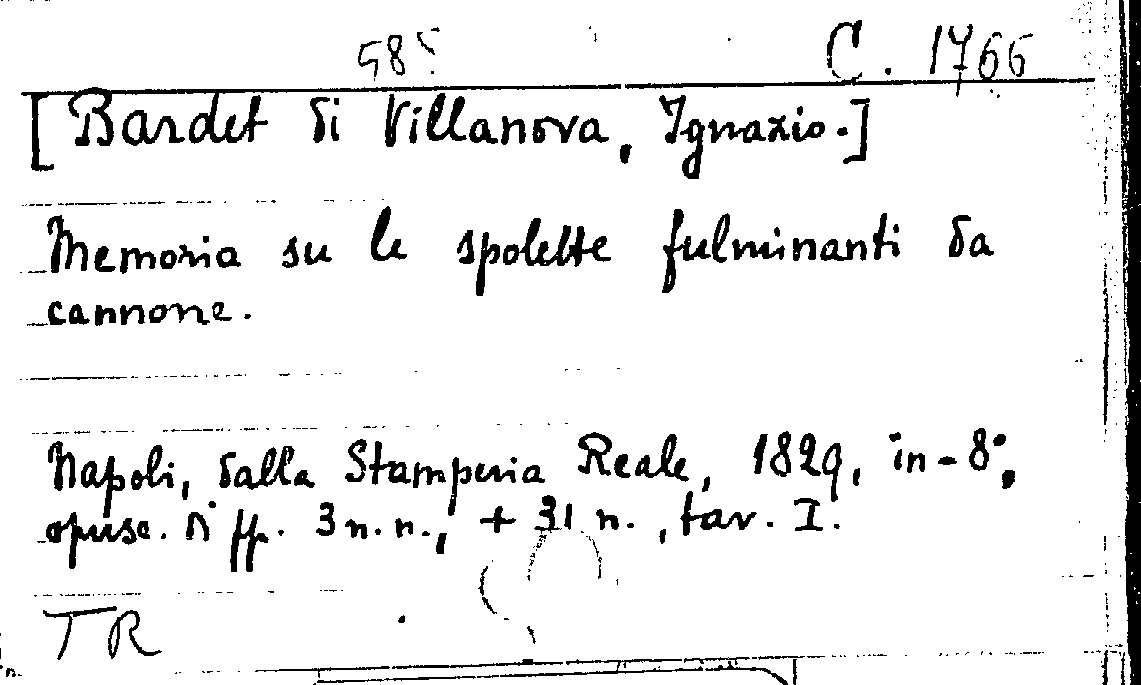 C. 1766
[Bardet di Villanova, Ignazio.]
Memoria su le spolette fulminanti da
cannone.
Napoli, dalla Stamperia Reale, 1829, in-8°,
opusc. di pp. 3 n.n., + 31 n., tav. I.
TR